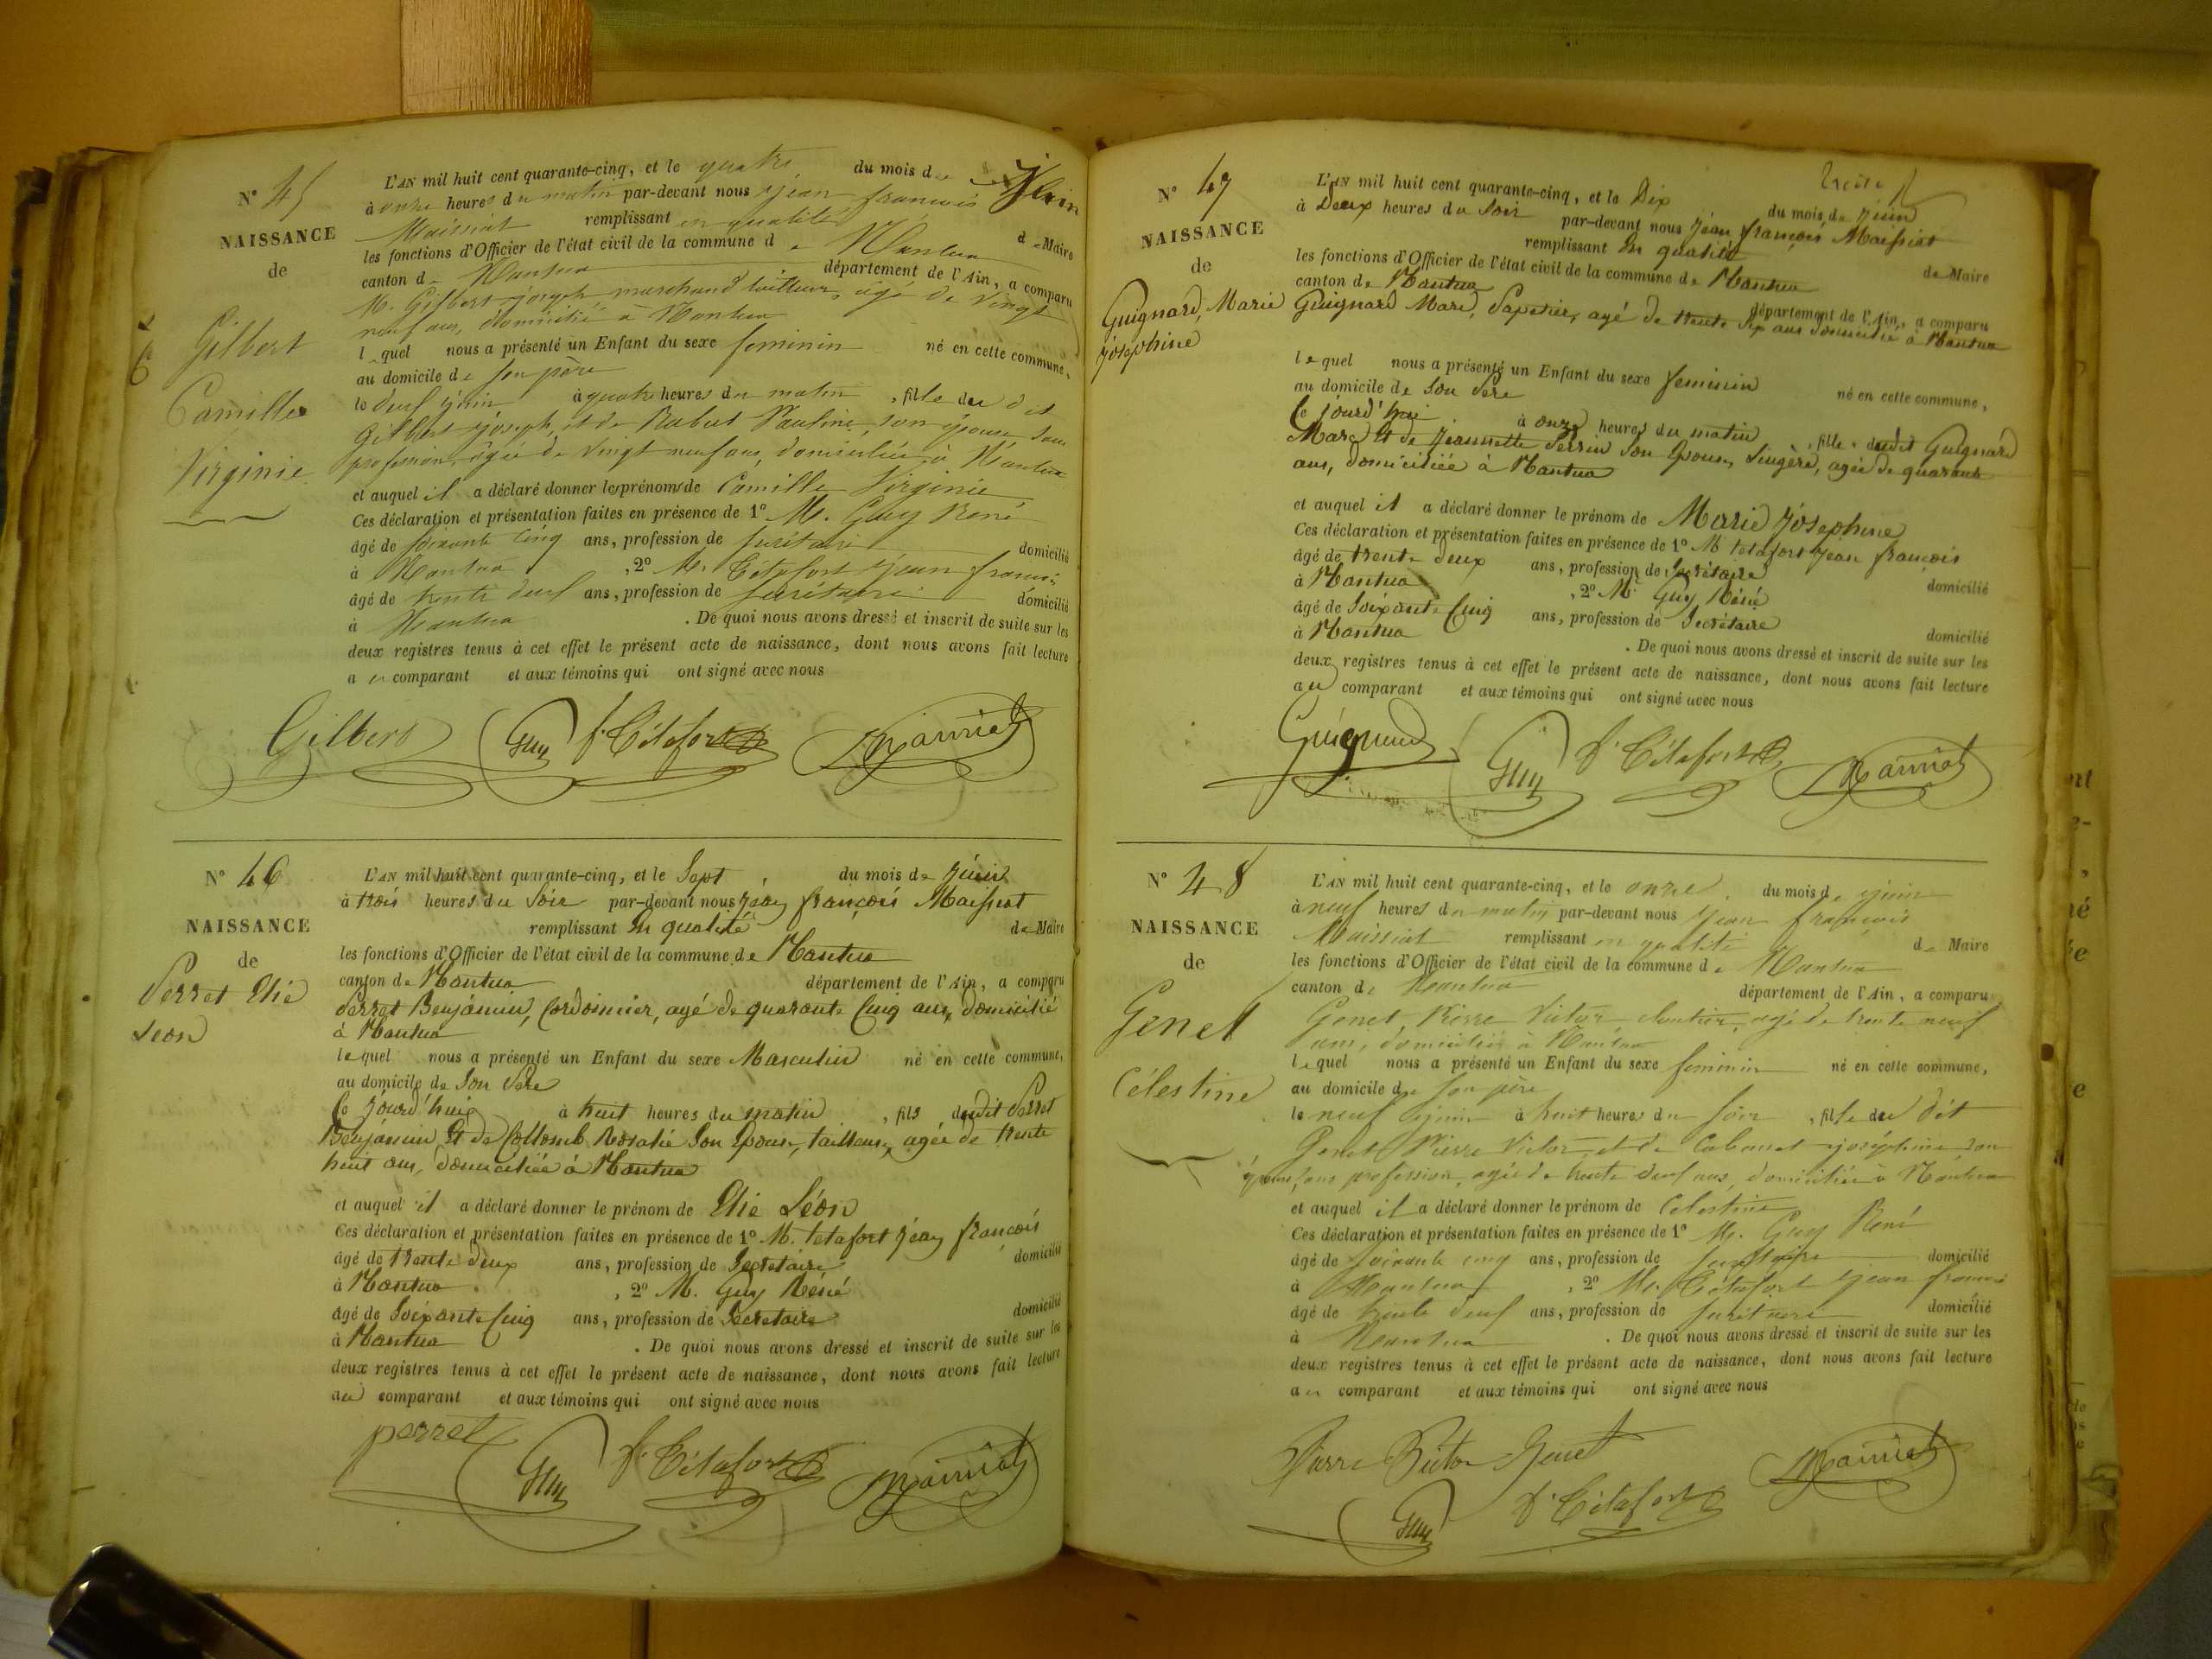 N° 45
NAISSANCE
de
Gilbert
Camille
Virginie
L'AN mil huit cent quarante-cinq, et le quatre du mois de Juin
à onze heures du matin par-devant nous Jean françois
Maissiat remplissant en qualité de Maire
les fonctions d'Officier de l'état civil de la commune de Nantua
canton de Nantua département de l'Ain, a comparu
M. Gilbert joseph marchand tailleur, agé de vingt
neuf ans, domicilié à Nantua
lequel nous a présenté un Enfant du sexe feminin né en cette commune,
au domicile de son père
le deux juin à quatre heures du matin, fille du dit
Gilbert joseph, et de Rabut Pauline, son épouse sans
profession, agée de vingt neuf ans, domiciliée à Nantua
et auquel il a déclaré donner les prénoms de Camille Virginie
Ces déclaration et présentation faites en présence de 1° M. Guy René
âgé de soixante cinq ans, profession de secrétaire domicilié
à Nantua, 2° M. Tétafort jean françois
âgé de trente deux ans, profession de secrétaire domicilié
à Nantua. De quoi nous avons dressé et inscrit de suite sur les
deux registres tenus à cet effet le présent acte de naissance, dont nous avons fait lecture
au comparant et aux témoins qui ont signé avec nous
Gilbert Guy f. Tétafort Maissiat
N° 46
NAISSANCE
de
Perret Elie
Leon
L'AN mil huit cent quarante-cinq, et le Sept du mois de Juin
à trois heures du Soir par-devant nous Jean françois Maissiat
remplissant En qualité de Maire
les fonctions d'Officier de l'état civil de la commune de Nantua
canton de Nantua département de l'Ain, a comparu
Perret Benjamin, Cordonnier, agé de quarante Cinq ans, domicilié
à Nantua
lequel nous a présenté un Enfant du sexe Masculin né en cette commune,
au domicile de Son Père
Ce jourd'hui à huit heures du matin, fils dudit Perret
Benjamin Et de Collomb Rosalie Son Epouse, tailleuse, agée de trente
huit ans, domiciliée à Nantua
et auquel il a déclaré donner le prénom de Elie Léon
Ces déclaration et présentation faites en présence de 1° M. tetafort jean françois
âgé de trente deux ans, profession de Secretaire domicilié
à Nantua, 2° M. Guy Réné
âgé de Soixante Cinq ans, profession de Secretaire domicilié
à Nantua. De quoi nous avons dressé et inscrit de suite sur les
deux registres tenus à cet effet le présent acte de naissance, dont nous avons fait lecture
au comparant et aux témoins qui ont signé avec nous
perret Guy f. Tétafort Maissiat
N° 47
NAISSANCE
de
Guignard, Marie
josephine
L'AN mil huit cent quarante-cinq, et le Dix du mois de Juin
à Deux heures du Soir par-devant nous Jean françois Maissiat
remplissant En qualité de Maire
les fonctions d'Officier de l'état civil de la commune de Nantua
canton de Nantua département de l'Ain, a comparu
Guignard Marc, Papetier, agé de trente Six ans domicilié à Nantua
lequel nous a présenté un Enfant du sexe feminin né en cette commune,
au domicile de Son Père
Ce jourd'hui à onze heures du matin, fille dudit Guignard
Marc Et de Jeannette Perrin Son Epouse, Lingère, agée de quarante
ans, domiciliée à Nantua
et auquel il a déclaré donner le prénom de Marie josephine
Ces déclaration et présentation faites en présence de 1° M tetafort jean françois
âgé de trente deux ans, profession de Secrétaire domicilié
à Nantua, 2° M. Guy Réné
âgé de Soixante Cinq ans, profession de Secrétaire domicilié
à Nantua. De quoi nous avons dressé et inscrit de suite sur les
deux registres tenus à cet effet le présent acte de naissance, dont nous avons fait lecture
au comparant et aux témoins qui ont signé avec nous
Guignard Guy f. Tétafort Maissiat
N° 48
NAISSANCE
de
Genet
Célestine
L'AN mil huit cent quarante-cinq, et le onze du mois de juin
à neuf heures du matin par-devant nous Jean françois
Maissiat remplissant en qualité de Maire
les fonctions d'Officier de l'état civil de la commune de Nantua
canton de Nantua département de l'Ain, a comparu
Genet Pierre Victor, agé de trente neuf
ans, domicilié à Nantua
lequel nous a présenté un Enfant du sexe feminin né en cette commune,
au domicile de son père
le neuf juin à huit heures du soir, fille du dit
Genet Pierre Victor, et de Cabanet joséphine son
épouse, sans profession, agée de trente deux ans, domiciliée à Nantua
et auquel il a déclaré donner le prénom de Celestine
Ces déclaration et présentation faites en présence de 1° M. Guy René
âgé de soixante cinq ans, profession de secrétaire domicilié
à Nantua, 2° M. Tétafort jean françois
âgé de trente deux ans, profession de secrétaire domicilié
à Nantua. De quoi nous avons dressé et inscrit de suite sur les
deux registres tenus à cet effet le présent acte de naissance, dont nous avons fait lecture
au comparant et aux témoins qui ont signé avec nous
Pierre Victor Genet Maissiat
Guy f. Tétafort